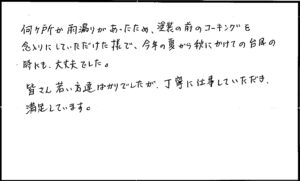 何ヶ所か雨漏りがあったため、塗装の前のコーキングを
念入りにしていただけた様で、今年の夏から秋にかけての台風の
時にも、大丈夫でした。
皆さん若い方達ばかりでしたが、丁寧に仕事していただき、
満足しています。